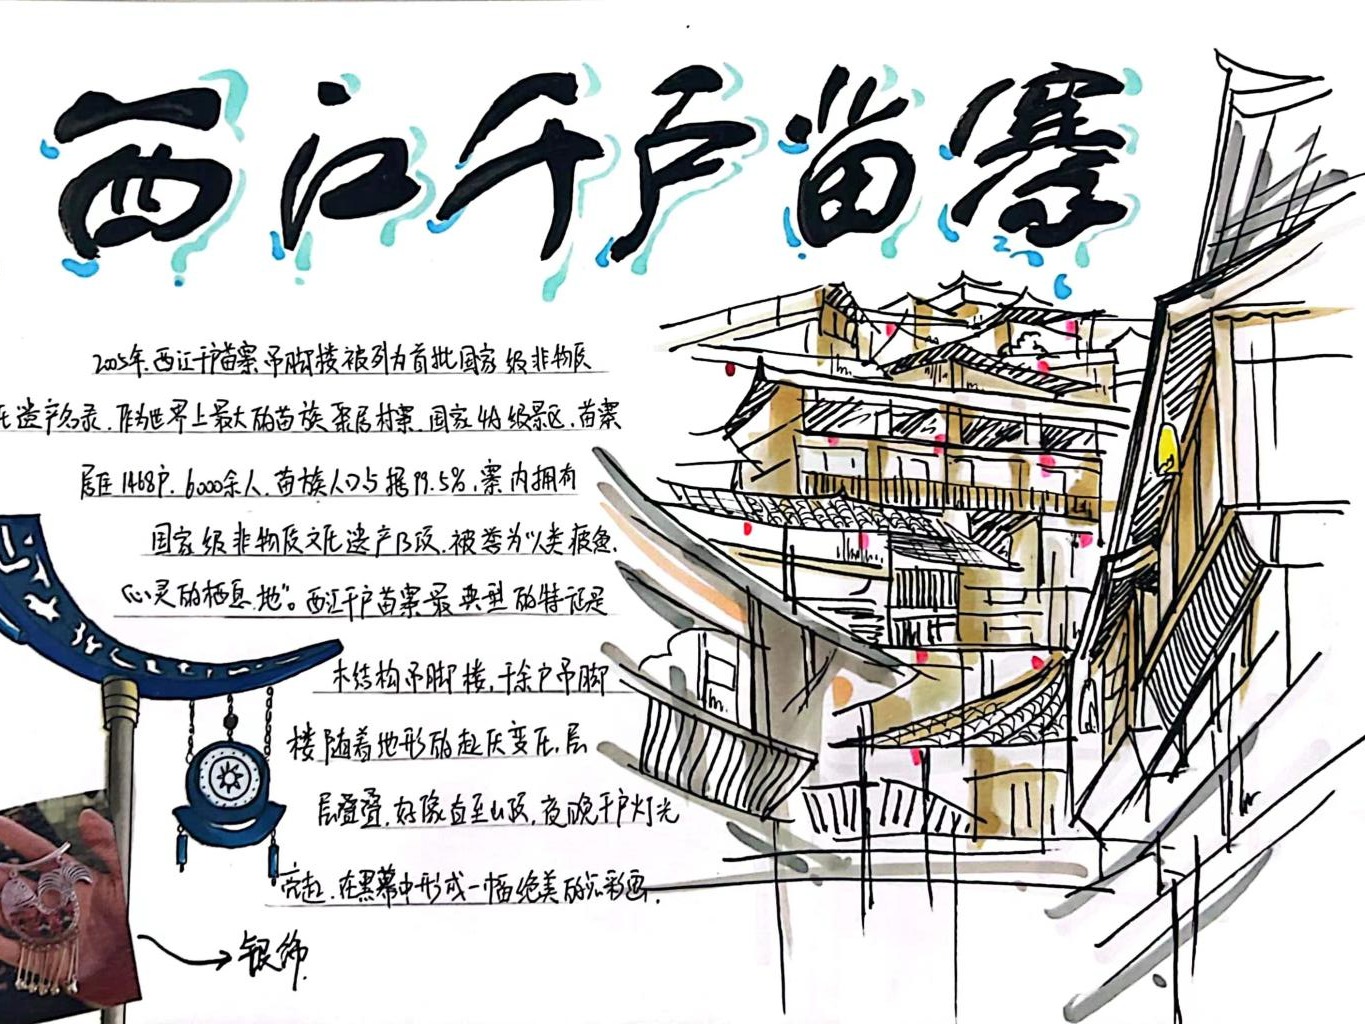 西江千户苗寨
2005年.西江千户苗寨吊脚楼被列为首批国家级非物质
化遗产名录.作为世界上最大的苗族聚居村寨.国家4A级景区.苗寨
居住1468户.6000余人.苗族人口占据99.5%.寨内拥有
国家级非物质文化遗产13项.被誉为"人类疲惫
心灵的栖息地"。西江千户苗寨最典型的特征是
木结构吊脚楼,千余户吊脚
楼随着地形的起伏变化.层
层叠叠.好像直至山顶.夜晚千户灯光
亮起.在黑幕中形成一幅绝美的光彩画.
银饰